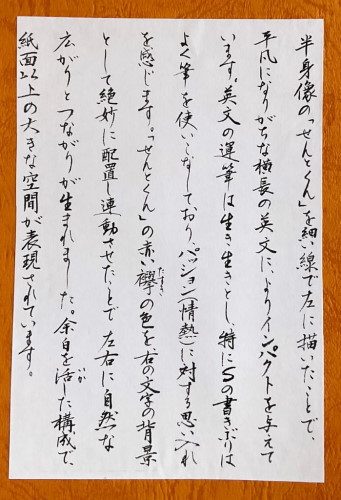 半身像の「せんとくん」を細い線で左に描いたことで、
平凡になりがちな横長の英文に、よりインパクトを与えて
います。英文の運筆は生き生きとし、特にSの書きぶりは
よく筆を使いこなしており、パッション(情熱)に対する思い入れ
を感じます。「せんとくん」の赤い襷の色を、右の文字の背景
たすき
として絶妙に配置し連動させたことで左右に自然な
広がりとつながりが生まれました。余白を活した構成で、
いか
紙面以上の大きな空間が表現されています。